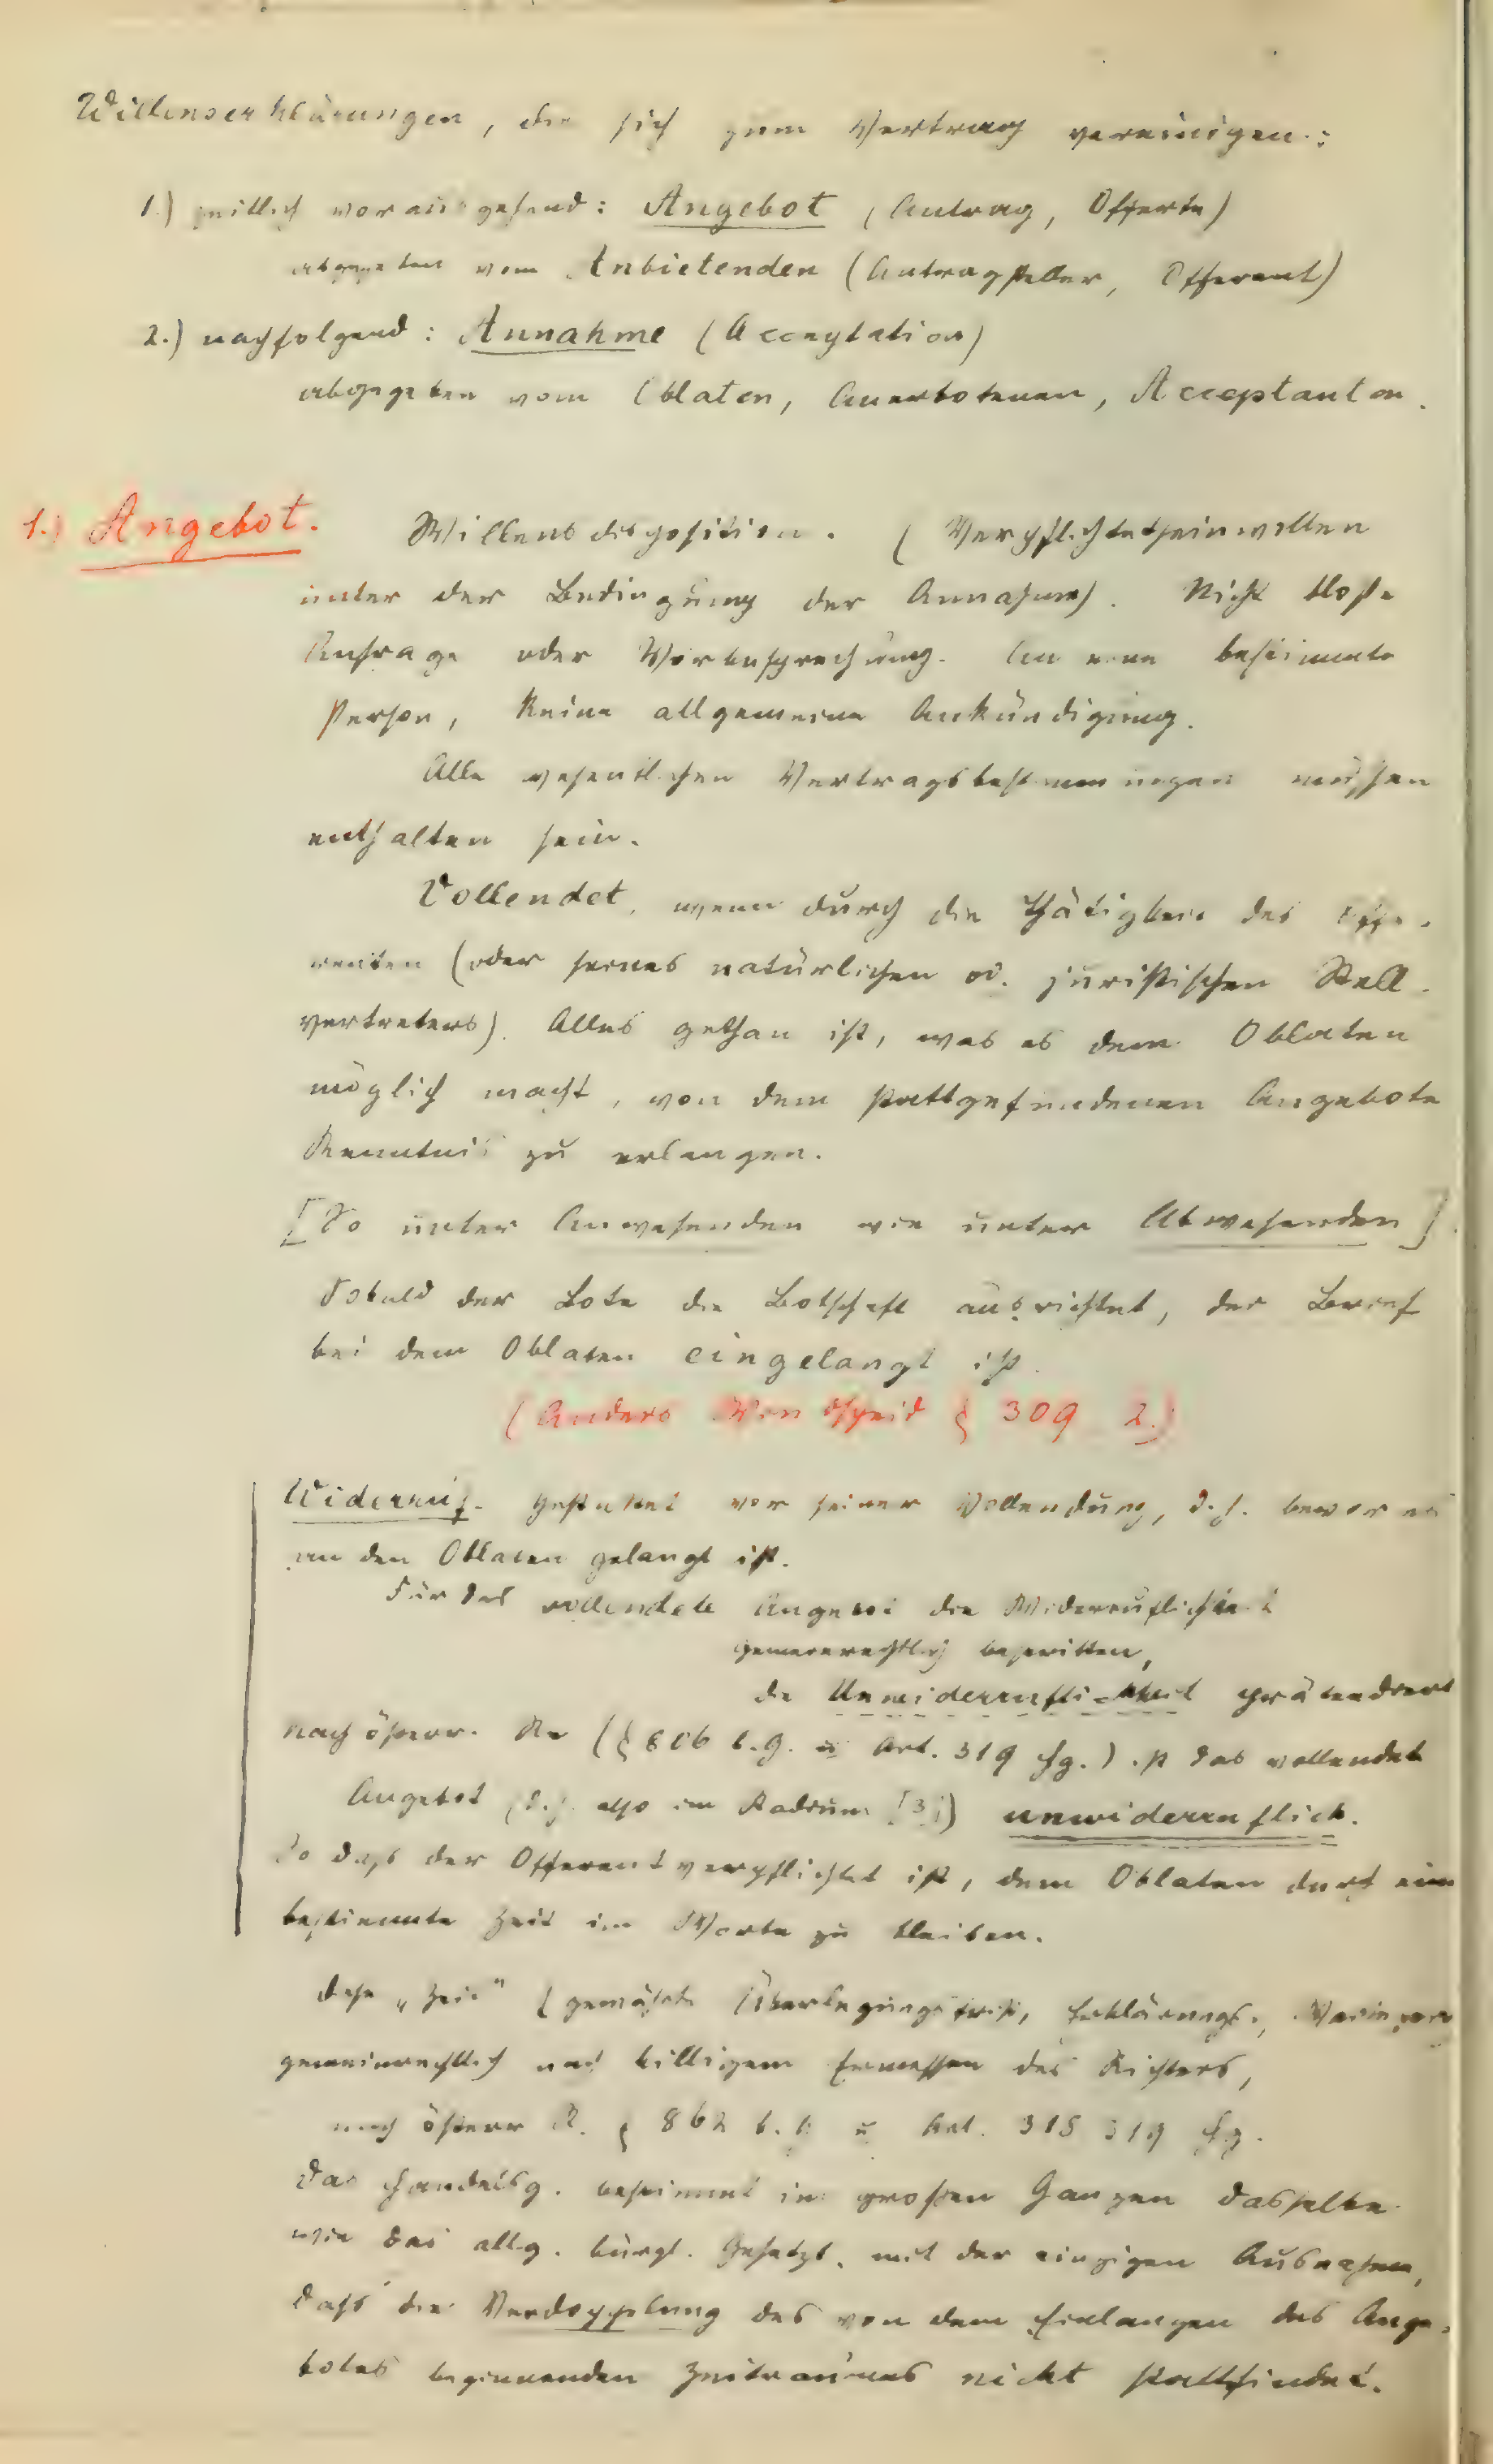 Willenserklärungen, die sich zum Vertrag vereinigen:
1.) zeitlich vorausgehend: Angebot (Antrag, Offerte)
abgegeben vom Anbietenden (Antragsteller, Offerent)
2.) nachfolgend: Annahme (Acceptation)
abgegeben vom Oblaten, Anerbotenen, Acceptanten.
1.) Angebot. Willensdisposition. (Verpflichtetseinwollen
unter der Bedingung der Annahme). Nicht bloße
Anfrage oder Vorbesprechung. An eine bestimmte
Person, keine allgemeine Ankündigung.
Alle wesentlichen Vertragsbestimmungen müssen
enthalten sein.
Vollendet, wenn durch die Thätigkeit des Offe-
renten (oder seines natürlichen od. juristischen Stell-
vertreters) Alles gethan ist, was es dem Oblaten
möglich macht, von dem stattgefundenen Angebote
Kenntnis zu erlangen.
[So unter Anwesenden wie unter Abwesenden].
Sobald der Bote die Botschaft ausrichtet, der Brief
bei dem Oblaten eingelangt ist.
(Anders Windscheid § 309 2.)
Widerruf. Gestattet vor seiner Vollendung, d.h. bevor es
an den Oblaten gelangt ist.
Für das vollendete Angebot die Widerruflichkeit
gemeinrechtlich bestritten,
die Unwiderruflichkeit
nach österr. Re (§ 806 b.G. u Art. 319 Hg.) ist das vollendete
Angebot (d.h. also im Stadium [3]) unwiderruflich.
So daß der Offerent verpflichtet ist, dem Oblaten durch eine
bestimmte Zeit im Worte zu bleiben.
Diese „Zeit" Überlegungsfrist, Erklärungs-,
gemeinrechtlich nach billigem Ermessen des Richters,
nach österr R. § 862 b.G. u Art. 318 319 Hg.
Das Handelsg. bestimmt im großen Ganzen dasselbe
wie das allg. bürgl. Gesetzb. mit der einzigen Ausnahme,
daß die Verdopplung des von dem Einlangen des Ange-
botes beginnenden Zeitraumes nicht stattfindet.